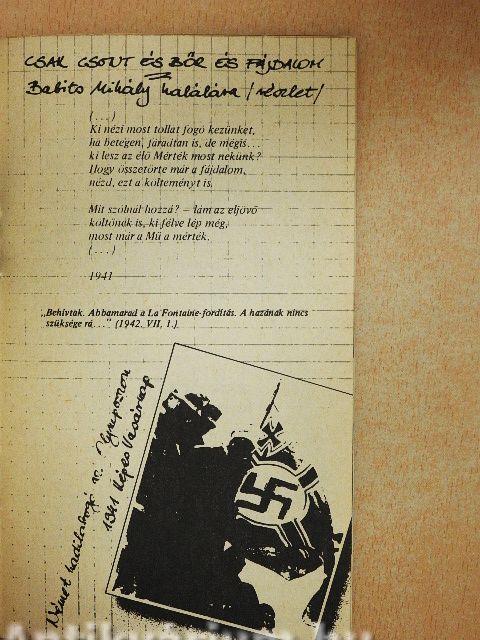 CSAK CSONT ÉS BŐR ÉS FÁJDALOM
Babits Mihály halálára /részlet/
(...)
Ki nézi most tollat fogó kezünket,
ha betegen, fáradtan is, de mégis...
ki lesz az élő Mérték most nekünk?
Hogy összetörte már a fájdalom,
nézd, ezt a költeményt is.
Mit szólnál hozzá? – lám az eljövő
költőnek is, ki félve lép még,
most már a Mű a mérték.
(...)
1941
„Behívtak. Abbamarad a La Fontaine-fordítás. A hazának nincs
szüksége rá..." (1942. VII, 1.)
Német hadilobogó
1941 Képes Vasárnap
Antikvárium.hu